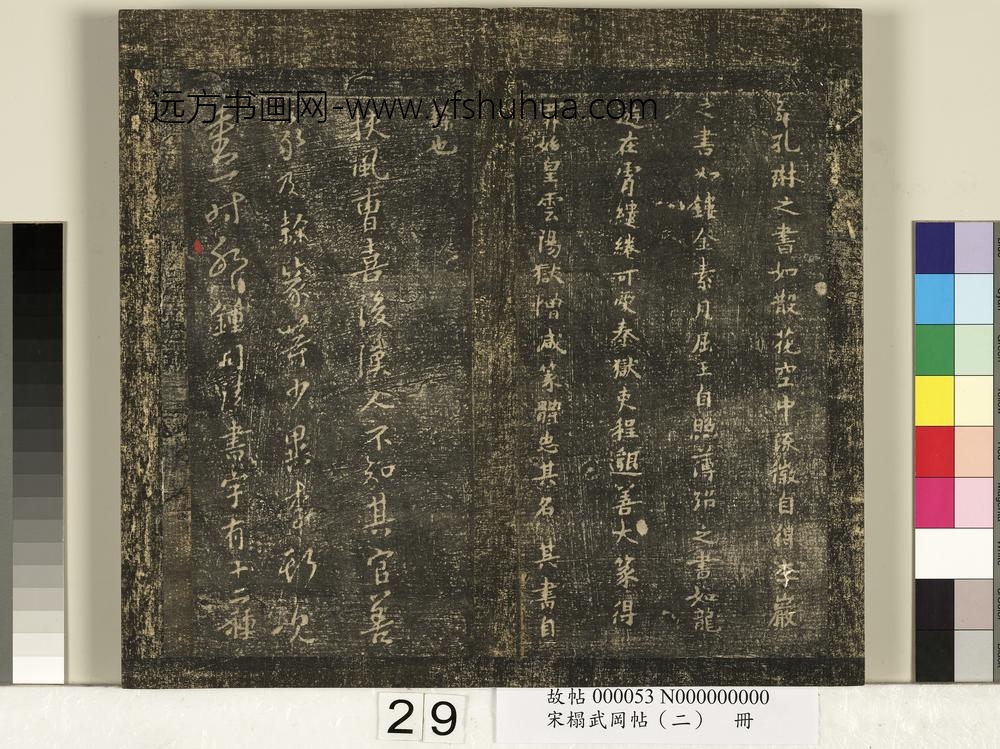 孔琳之書如散花空中流徽自得 李巖
之書如鏤金素月屈玉自照薄紹之書如龍
在霄繾綣可愛秦獄吏程邈善大篆得
始皇雲陽獄增減篆體去其名 其書自
也
扶風曹喜後漢人不知其官善
及隸篆少異李斯
一時 書字有十二種
远方书画网-www.yfshuhua.com
29
故帖 000053 N000000000
宋榻武岡帖（二） 冊